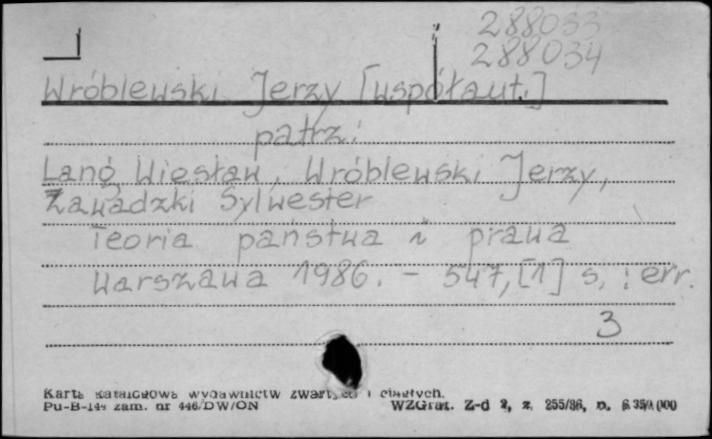 288033
288034
Wróblewski Jerzy [współaut.]
patrz:
Lang Wiesław, Wróblewski Jerzy,
Zawadzki Sylwester
Teoria państwa i prawa
Warszawa 1986. - 547, [1] s. : err.
3
Karta katalogowa wydawnictw zwartych i ciągłych.
Pu-B-144 zam. nr 446/DW/ON WZGraf. Z-d 2, z. 255/86, n.